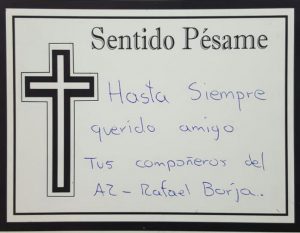 Sentido Pésame
Hasta Siempre
querido amigo
Tus compañeros del
AZ - Rafael Borja.